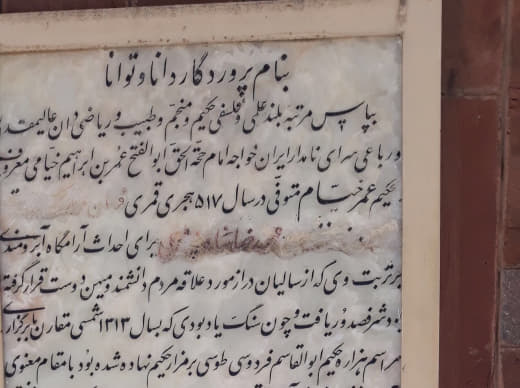 بنام پروردگار دانا و توانا
بپاس مرتبه بلند علمی و فلسفی حکیم و منجم و طبیب و ریاضی دان عالیمقدار
و رباعی سرای نامدار ایران خواجه امام حجة الحق ابوالفتح عمر بن ابراهیم خیامی معروف
بحکیم عمر خیام متوفی در سال ۵۱۷ هجری قمری
برای احداث آرامگاه آبرومندی
بر تربت وی که از سالیان دراز مورد علاقه مردم دانشمند و میهن دوست قرار گرفته
بود شرفصدور یافت و چون سنگ یادبودی که بسال ۱۳۱۳ شمسی مقارن با برگزاری
مراسم هزاره حکیم ابوالقاسم فردوسی طوسی بر مزار حکیم نهاده شده بود با مقام معنوی